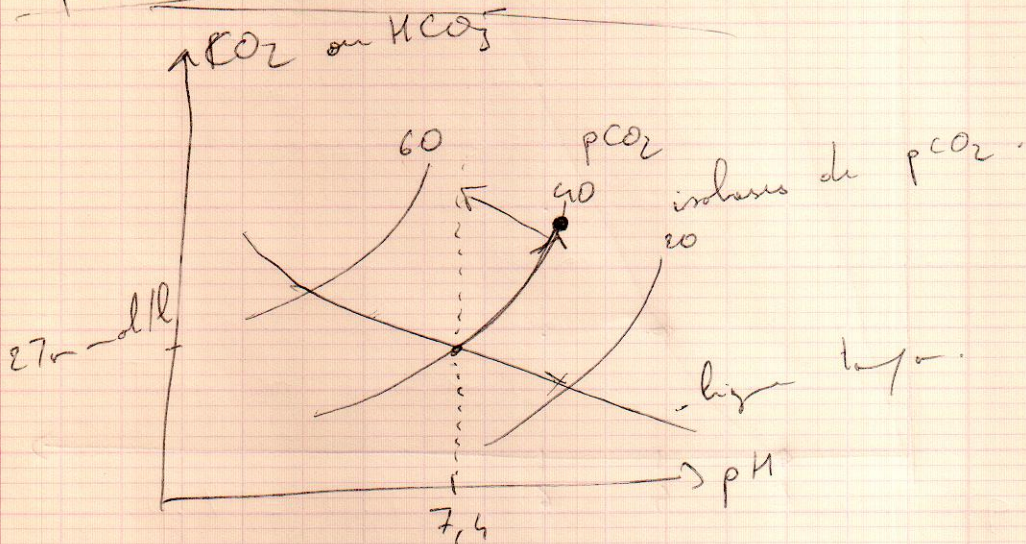 CO2 ou HCO3-
60
pCO2
40
isobases de pCO2.
20
27 mmol/l
ligne tampon.
pH
7,4